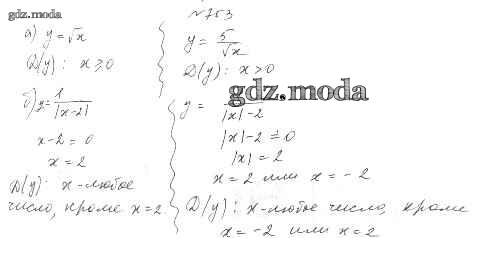 gdz.moda
№753
а) y = √x
D(y): x ≥ 0
y = 5/√x
D(y): x > 0
gdz.moda
б) y = 1/|x-2|
x-2 = 0
x = 2
D(y): x-любое
число, кроме x = 2
y =
|x|-2
|x|-2 ≠ 0
|x| = 2
x = 2 или x = -2
D(y): x-любое число, кроме
x = -2 или x = 2